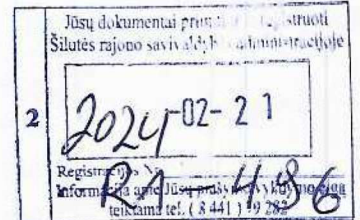 Jūsų dokumentai priimti ir registruoti
Šilutės rajono savivaldybės administracijoje
2
2024-02-21
Registracijos Nr.
R1-4196
Informacija apie Jūsų prašymo vykdymo eigą
teikiama tel. ( 8 441 ) 79 282